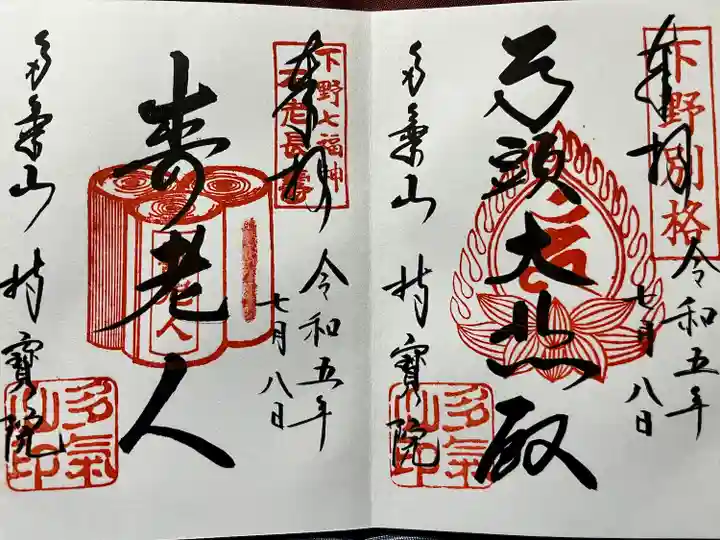 奉拝
下野別格
令和五年
七月八日
馬頭大悲殿
多氣山 持寶院
多氣山印
奉拝
下野七福神
不老長壽
令和五年
七月八日
寿老人
多氣山 持寶院
多氣山印